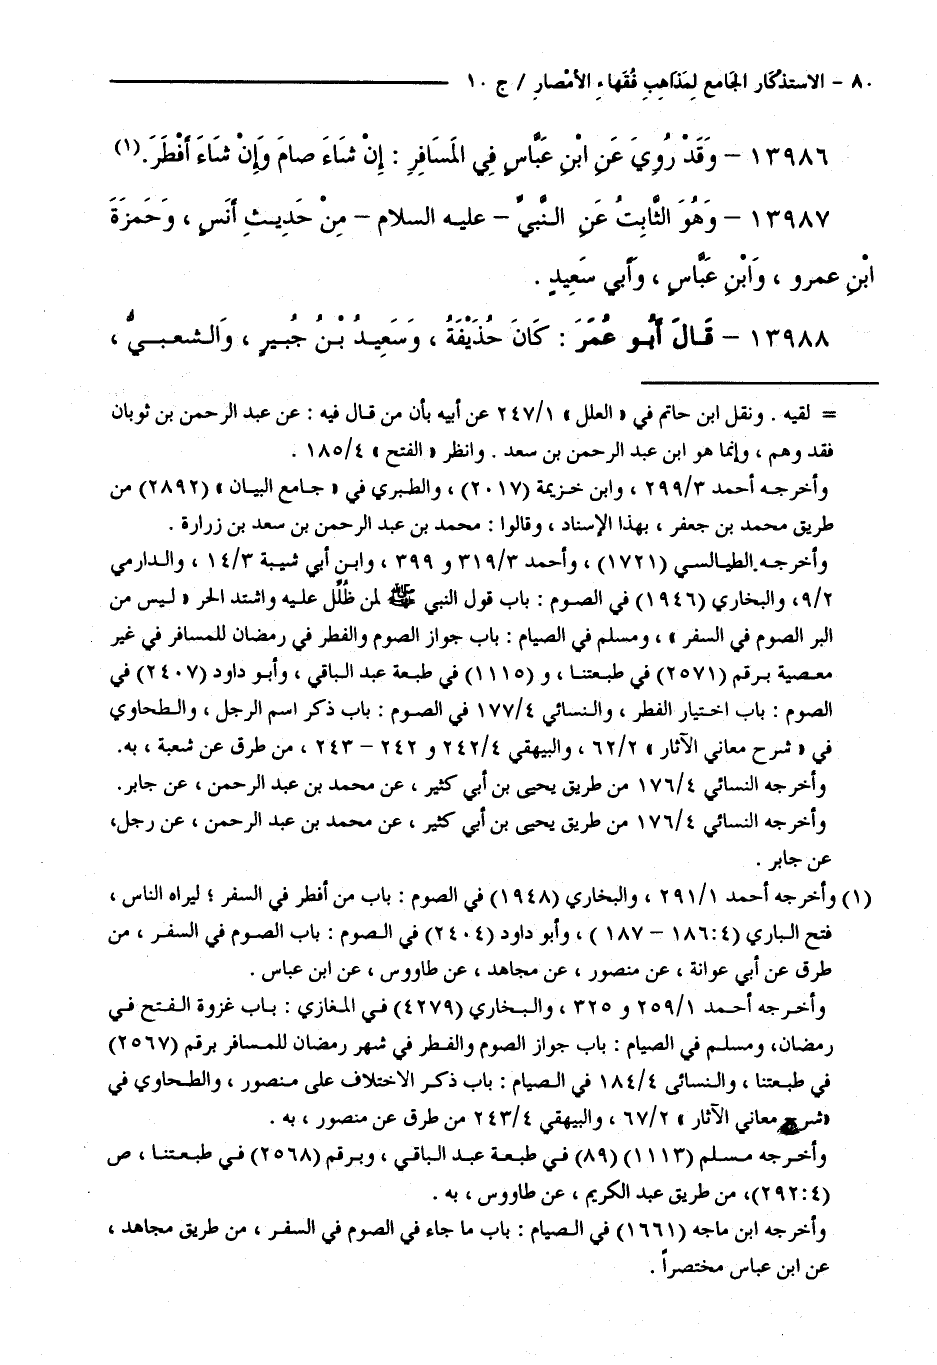 ٨٠ - الاستذكار الجامع لمذاهب فقهاء الأمصار / ج ١٠
١٣٩٨٦ - وَقَدْ رُوِيَ عَنِ ابْنِ عَبَّاسٍ فِي المَسَافِرِ : إِنْ شَاءَ صامَ وَإِنْ شَاءَ أَفْطَرَ.(١)
١٣٩٨٧ - وَهُوَ الثَّابِتُ عَنِ النَّبِيِّ - عليه السلام - مِنْ حَدِيثِ أَنَسٍ ، وَحَمزَةَ
ابْنِ عمرو ، وَابْنِ عَبَّاسٍ ، وَأَبي سَعِيدٍ .
١٣٩٨٨ - قَالَ أَبُو عُمَرَ : كَانَ حُذَيْفَةُ ، وَسَعِيدُ بْنُ جُبيرٍ ، وَالشعبيُّ ،
= لقيه . ونقل ابن حاتم في « العلل » ٢٤٧/١ عن أبيه بأن من قال فيه : عن عبد الرحمن بن ثوبان
فقد وهم ، وإنما هو ابن عبد الرحمن بن سعد . وانظر « الفتح » ١٨٥/٤ .
وأخرجه أحمد ٢٩٩/٣ ، وابن خزيمة (٢٠١٧) ، والطبري في « جامع البيان » (٢٨٩٢) من
طريق محمد بن جعفر ، بهذا الإسناد ، وقالوا : محمد بن عبد الرحمن بن سعد بن زرارة .
وأخرجه الطيالسي (١٧٢١) ، وأحمد ٣١٩/٣ و ٣٩٩ ، وابن أبي شيبة ١٤/٣ ، والدارمي
٩/٢، والبخاري (١٩٤٦) في الصوم : باب قول النبي ﷺ لمن ظُلِّل عليه واشتد الحر « ليس من
البر الصوم في السفر » ، ومسلم في الصيام : باب جواز الصوم والفطر في رمضان للمسافر في غير
معصية برقم (٢٥٧١) في طبعتنا ، و (١١١٥) في طبعة عبد الباقي ، وأبو داود (٢٤٠٧) في
الصوم : باب اختيار الفطر ، والنسائي ١٧٧/٤ في الصوم : باب ذكر اسم الرجل ، والطحاوي
في « شرح معاني الآثار » ٦٢/٢ ، والبيهقي ٢٤٢/٤ و ٢٤٢ - ٢٤٣ ، من طرق عن شعبة ، به.
وأخرجه النسائي ١٧٦/٤ من طريق يحيى بن أبي كثير ، عن محمد بن عبد الرحمن ، عن جابر.
وأخرجه النسائي ١٧٦/٤ من طريق يحيى بن أبي كثير ، عن محمد بن عبد الرحمن ، عن رجل،
عن جابر .
(١) وأخرجه أحمد ٢٩١/١ ، والبخاري (١٩٤٨) في الصوم : باب من أفطر في السفر ؛ ليراه الناس ،
فتح الباري (١٨٦:٤ - ١٨٧ ) ، وأبو داود (٢٤٠٤) في الصوم : باب الصوم في السفر ، من
طرق عن أبي عوانة ، عن منصور ، عن مجاهد ، عن طاووس ، عن ابن عباس .
وأخرجه أحمد ٢٥٩/١ و ٣٢٥ ، والبخاري (٤٢٧٩) في المغازي : باب غزوة الفتح في
رمضان، ومسلم في الصيام : باب جواز الصوم والفطر في شهر رمضان للمسافر برقم (٢٥٦٧)
في طبعتنا ، والنسائى ١٨٤/٤ في الصيام : باب ذكر الاختلاف على منصور ، والطحاوي في
«شرح معاني الآثار » ٦٧/٢ ، والبيهقي ٢٤٣/٤ من طرق عن منصور ، به .
وأخرجه مسلم (١١١٣) (٨٩) في طبعة عبد الباقي ، وبرقم (٢٥٦٨) في طبعتنا ، ص
(٢٩٢:٤)، من طريق عبد الكريم ، عن طاووس ، به .
وأخرجه ابن ماجه (١٦٦١) في الصيام : باب ما جاء في الصوم في السفر ، من طريق مجاهد ،
عن ابن عباس مختصراً .